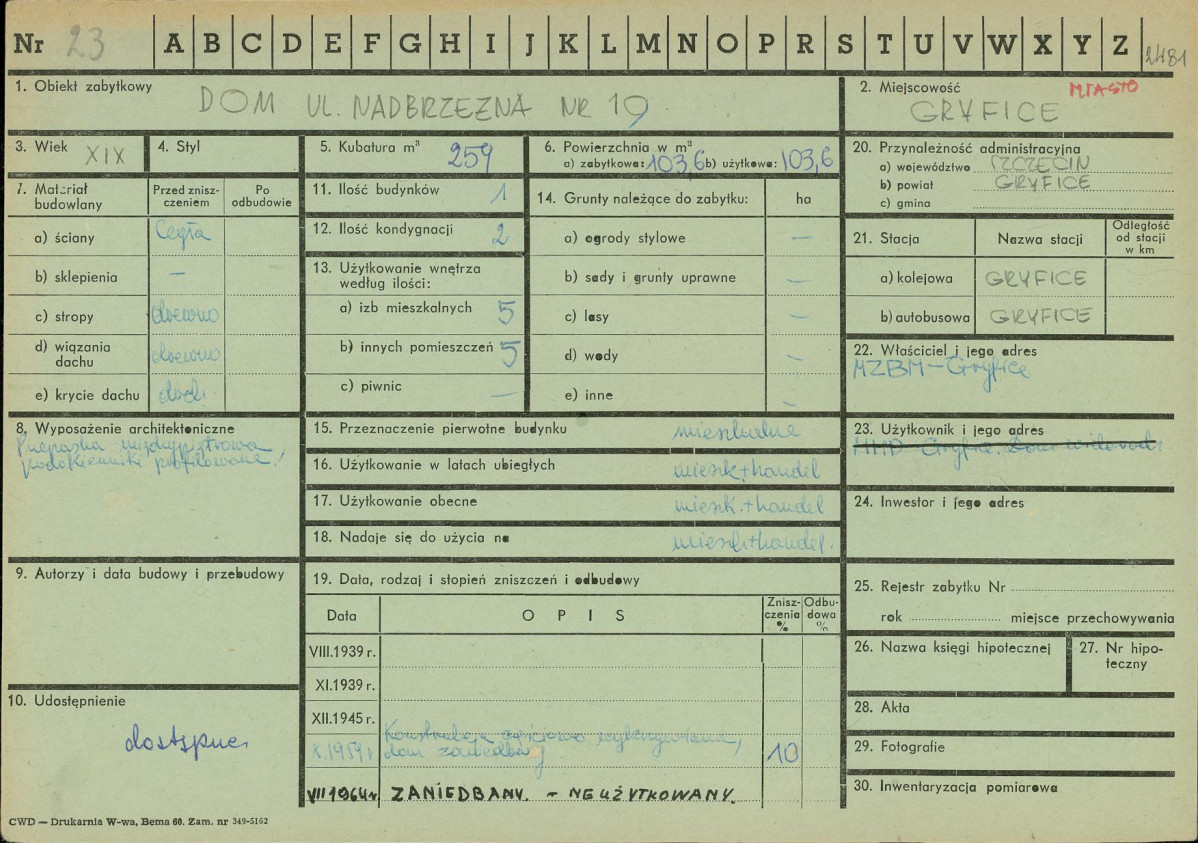 Nr 23 A B C D E F G H I J K L M N O P R S T U V W X Y Z 2481
1. Obiekt zabytkowy
DOM UL. NADBRZEZNA NR 19
2. Miejscowość MIASTO
GRYFICE
3. Wiek XIX
4. Styl
5. Kubatura m³ 259
6. Powierzchnia w m²
a) zabytkowa: 103,6 b) użytkowa: 103,6
20. Przynależność administracyjna
a) województwo SZCZECIN
b) powiat GRYFICE
c) gmina
7. Materiał budowlany
Przed zniszczeniem
Po odbudowie
a) ściany Cegła
b) sklepienia —
c) stropy drewno
d) wiązania dachu drewno
e) krycie dachu dach.
11. Ilość budynków 1
12. Ilość kondygnacji 2
13. Użytkowanie wnętrza
według ilości:
a) izb mieszkalnych 5
b) innych pomieszczeń 5
c) piwnic —
14. Grunty należące do zabytku: ha
a) ogrody stylowe —
b) sady i grunty uprawne —
c) lasy —
d) wody —
e) inne —
21. Stacja Nazwa stacji
Odległość
od stacji
w km
a) kolejowa GRYFICE
b) autobusowa GRYFICE
22. Właściciel i jego adres
MZBM - Gryfice
8. Wyposażenie architektoniczne
międzypiętrowa
podokienniki profilowane.
15. Przeznaczenie pierwotne budynku mieszkalne
16. Użytkowanie w latach ubiegłych mieszk. + handel
17. Użytkowanie obecne mieszk. + handel
18. Nadaje się do użycia na mieszk. + handel.
23. Użytkownik i jego adres
MHD - Gryfice. Dom
24. Inwestor i jego adres
9. Autorzy i data budowy i przebudowy
19. Data, rodzaj i stopień zniszczeń i odbudowy
Data OPIS
Zniszczenia %
Odbudowa %
VIII.1939 r.
XI.1939 r.
XII.1945 r.
Konstrukcja częściowo
X.1959 r. dom zaniedbany 10
VII 1964 r ZANIEDBANY. - NEUŻYTKOWANY.
25. Rejestr zabytku Nr
rok miejsce przechowywania
26. Nazwa księgi hipotecznej
27. Nr hipoteczny
10. Udostępnienie
dostępne.
28. Akta
29. Fotografie
30. Inwentaryzacja pomiarowa
CWD — Drukarnia W-wa, Bema 60. Zam. nr 349-5162